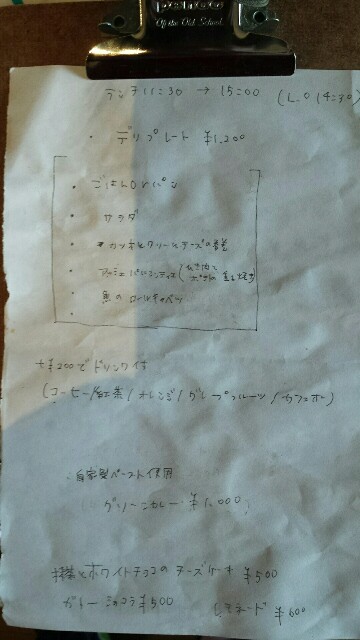 Of the Old School
ランチ 11:30 → 15:00 (L.O 14:30)
・デリプレート ¥1,200
・ごはん or パン
・サラダ
・カツオとクリームチーズの春巻
・アッシェ パルマンティエ (ひき肉と
・魚のロールキャベツ
+¥200でドリンク付
(コーヒー/紅茶/オレンジ/グレープフルーツ/カフェオレ)
自家製ペースト使用
グリーンカレー ¥1,000
抹茶とホワイトチョコのチーズケーキ ¥500
ガトーショコラ ¥500 レモネード ¥600